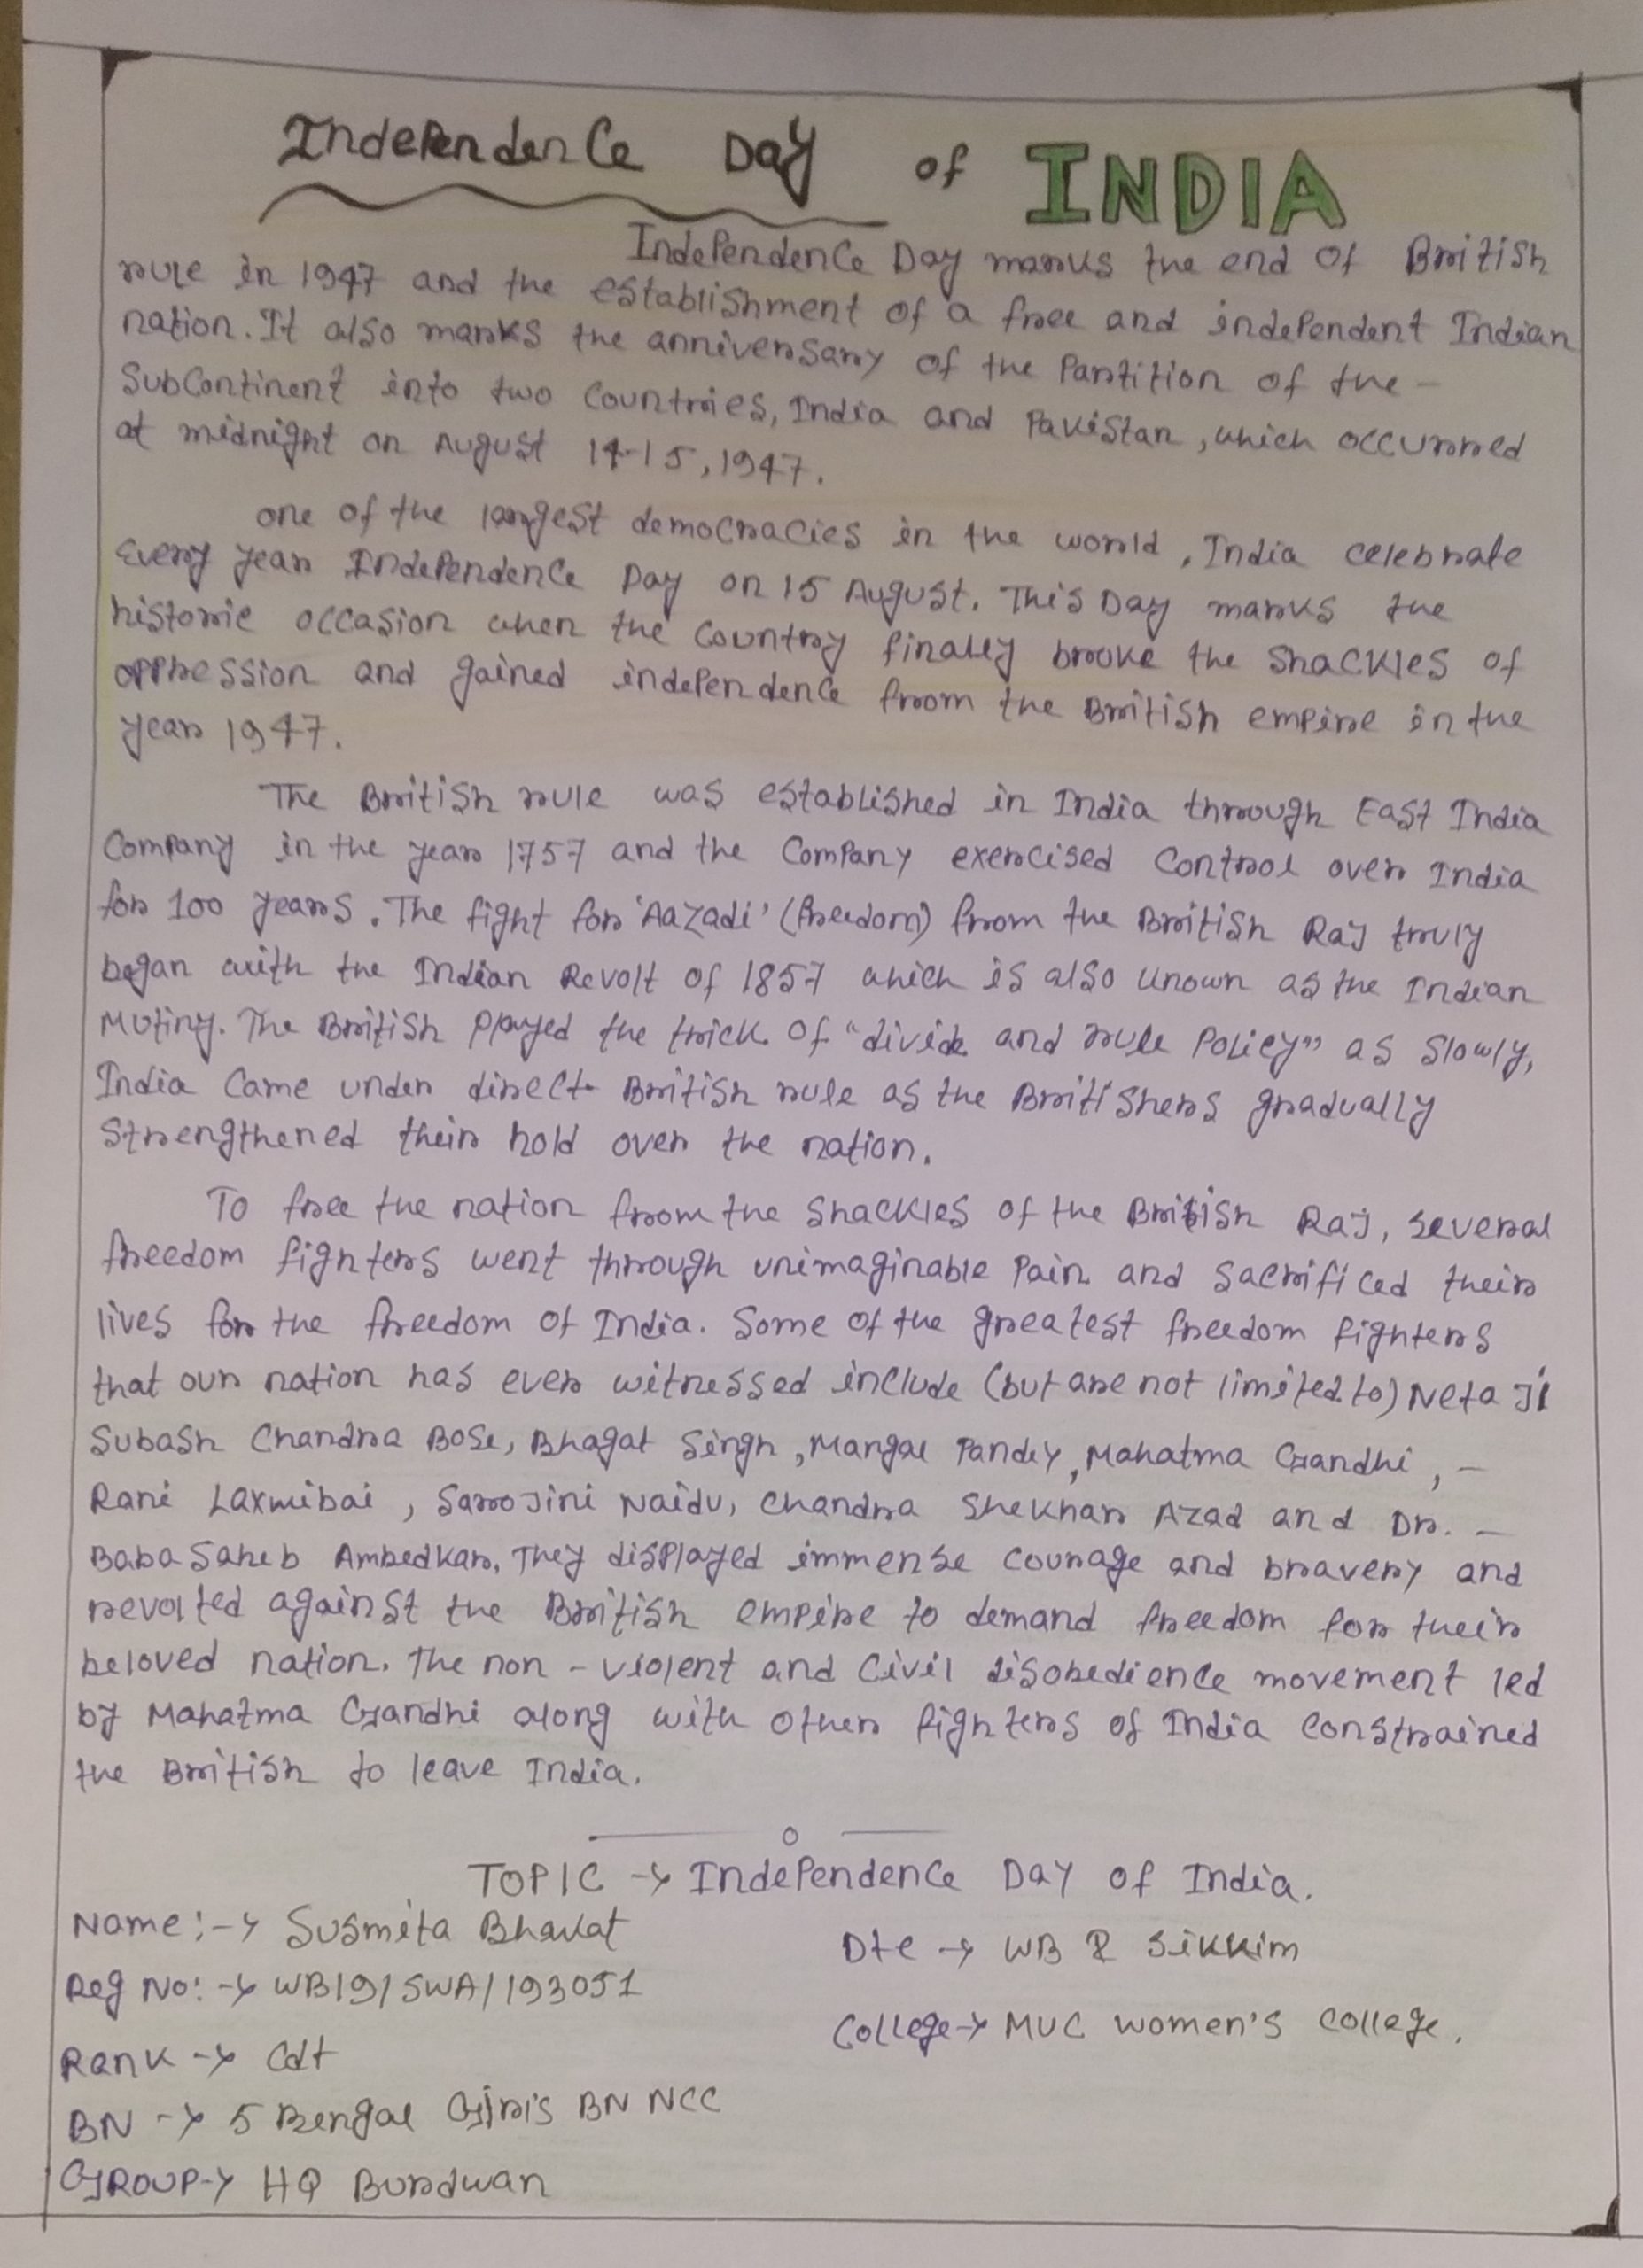 Independence Day of INDIA
Independence Day marks the end of British
rule in 1947 and the establishment of a free and independent Indian
nation. It also marks the anniversary of the Partition of the -
Subcontinent into two Countries, India and Pakistan, which occurred
at midnight on August 14-15, 1947.
one of the largest democracies in the world, India celebrate
Every year Independence Day on 15 August. This Day marks the
historic occasion when the Country finally broke the Shackles of
oppression and gained independence from the British empire in the
year 1947.
The British rule was established in India through East India
Company in the year 1757 and the Company exercised Control over India
for 100 years. The fight for 'Aazadi' (freedom) from the British Raj truly
began with the Indian Revolt of 1857 which is also known as the Indian
Mutiny. The British Played the trick of "divide and rule Policy" as Slowly,
India Came under direct British rule as the Britishers gradually
Strengthened their hold over the nation.
To free the nation from the Shackles of the British Raj, Several
freedom fighters went through unimaginable Pain and Sacrificed their
lives for the freedom of India. Some of the greatest freedom fighters
that our nation has ever witnessed include (but are not limited to) Neta Ji
Subash Chandra Bose, Bhagat Singh, Mangal Pandey, Mahatma Gandhi, -
Rani Laxmibai, Sarojini Naidu, Chandra Shekhar Azad and Dr. -
Baba Saheb Ambedkar. They displayed immense Courage and bravery and
revolted against the British empire to demand freedom for their
beloved nation. The non-violent and Civil disobedience movement led
by Mahatma Gandhi along with other fighters of India Constrained
the British to leave India.
TOPIC → Independence Day of India.
Name:-→ Susmita Bhakat
Dte → WB & Sikkim
Reg No:-→ WB19/SWA/193051
College→ MUC Women's College.
Rank → Cdt
BN → 5 Bengal Girls BN NCC
GROUP→ HQ Burdwan